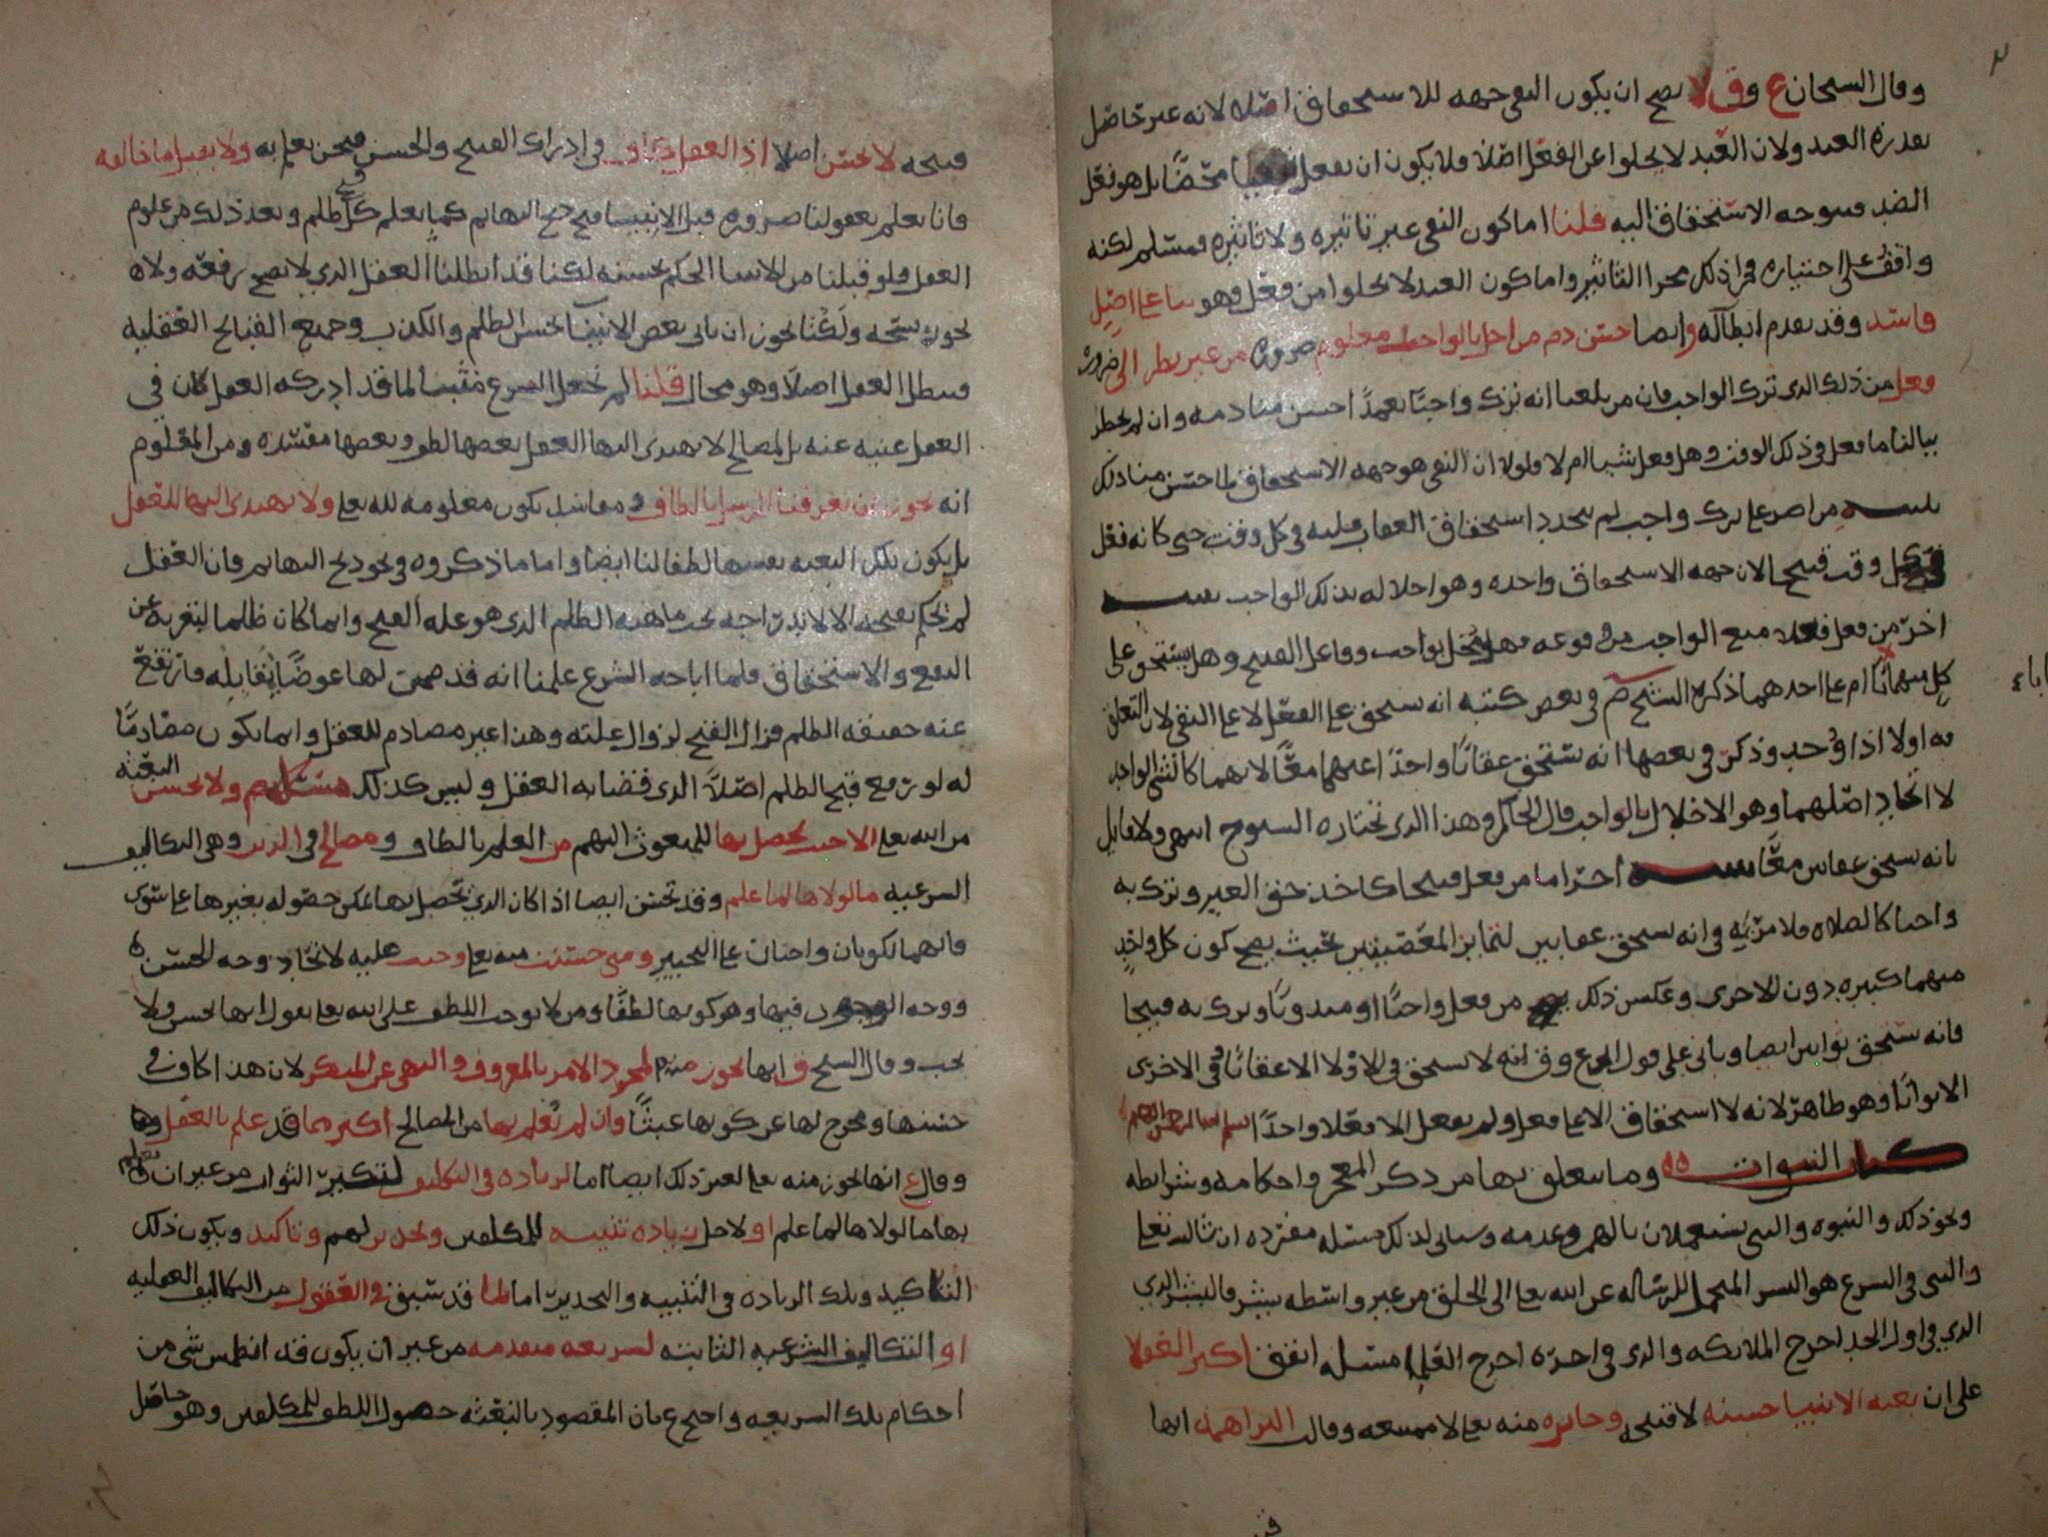 وقال الشيخان ع وق لا يصح ان يكون النفي جهه للاستحقاق اصلا لانه غير حاصل
بقدرة العبد ولان العبد لا يخلوا عن الفعل اصلا فلا يكون ان يفعل نفيا محضا بل هو فعل
الضد فيتوجه الاستحقاق اليه قلنا اما كون النفي غير تاثيره ولا تاثيره فمسلم لكنه
واقف على اختياره فجرا ذلك مجرا التاثير واما كون العبد لا يخلوا من فعل فهو بنا على اصل
فاسد وقد تقدم ابطاله وايضا حسن ذم من اخل بالواجب معلوم ضروره من غير نظر الى ضروره
فعل من ذلك الذي ترك الواجب فان من بلغنا انه ترك واجبا تعمدا احسن منا ذمه وان لم يخطر
ببالنا ما فعل في ذلك الوقت وهل فعل شيا ام لا فلولا ان النفي هو جهه الاستحقاق لما حسن منا ذلك
تنبيه من اصر على ترك واجب لم يتجدد استحقاق العقاب عليه في كل وقت حتى كانه فعل
في كل وقت قبيحا لان جهه الاستحقاق واحده وهو اخلاله بذلك الواجب تنبيه
اخر من فعل فعلا منع الواجب من وقوعه فهو مخل بواجب وفاعل القبيح وهل يستحق على
كل منهما ام على احدهما ذكر الشيخ في بعض كتبه انه يستحق على الفعل لا على النفي لان التعلق
به اولا اذا وجد وذكر في بعضها انه يستحق عقابا واحدا عليهما معا لانهما كالشي الواحد
لا اتحاد اصلهما وهو الاخلال بالواجب قال الحاكم وهذا الذي تختاره الشيوخ انتهى ولا قايل
بانه يستحق عقابين معا تنبيه احترازا من فعل قبيحا كاخذ حق الغير وترك به
واجبا كالصلاه فلا مريه في انه يستحق عقابين لتمايز المعصيتين بحيث يصح كون كل واحد
منهما كبيره دون الاخرى وعكس ذلك من فعل واجبا او مندوبا وترك به قبيحا
فانه يستحق ثوابين ايضا وياتي على قول ع وق انه لا يستحق في الاولا الا عقابا وفي الاخرى
الا ثوابا وهو ظاهر لانه لا استحقاق الا على فعل ولم يفعل الا فعلا واحدا
كتاب النبوات وما يتعلق بها من ذكر المعجز واحكامه وشرايطه
ونحو ذلك والنبوه والنبي يستعملان بالهمز وعدمه وسياتي لذلك مسئله مفرده ان شا الله تعالى
والنبي في الشرع هو البشر المتحمل للرساله عن الله تعالى الى الخلق من غير واسطه ببشر فالبشر الذي
الذي في اول الحد اخرج الملائكه والذي في اخره اخرج العلما مسئله اتفق اكثر العقلا
على ان بعثه الانبيا حسنه لا قبيحه وجايزه منه تعالى لا ممتنعه وقالت البراهمه انها
قبيحه لا تحسن اصلا اذ العقل كاف في ادراك القبيح والحسن فنحن نعلم به ولا نقبل ما خالفه
فانا نعلم بعقولنا ضروره قبل الانبيا قبح ذبح البهائم كما نعلم قبح كل ظلم وبعد ذلك من علوم
العقل فلو قبلنا من الانبيا الحكم بحسنه لكنا قد ابطلنا العقل الذي لا يصح رفعه ولانه
نجوز نسخه ولكنا نجوز ان ياتي بعض الانبيا بحسن الظلم والكذب وجميع القبايح العقليه
فيبطل العقل اصلا وهو محال قلنا لم نجعل الشرع مثبتا لما قد ادركه العقل كان في
العقل غنيه عنه بل المصالح لا يهتدي اليها العقل بعضها لطف وبعضها مفسده ومن المعلوم
انه يجوز ان تعرفنا الرسل بالطاف ومفاسد تكون معلومه لله تعالى ولا يهتدي اليها للعقل
بل يكون تلك البعثه نفسها لطفا لنا ايضا واما ما ذكروه في نحو ذبح البهائم فان العقل
لم يحكم بقبحه الا لاندراجه تحت ماهيه الظلم الذي هو عله القبح وانما كان ظلما لتعريه عن
النفع والاستحقاق فلما اباحه الشرع علمنا انه قد ضمن لها عوضا يقابله فارتفع
عنه حقيقه الظلم فزال القبح لزوال علته وهذا غير مصادم للعقل وانما يكون مصادما
له لو رفع قبح الظلم اصلا الذي قضا به العقل وليس كذلك مسئله ولا تحسن البعثه
من الله تعالى الا حيث يحصل بها للمبعوث اليهم من العلم بالطاف ومصالح في الدين وهي التكاليف
الشرعيه ما لولاها لما علم وقد تحسن ايضا اذا كان الذي يحصل بها يمكن حصوله بغيرها على سوى
فانهما يكونان واجبان على التخيير ومتى حسنت منه تعالى وجبت عليه لاتحاد وجه الحسن
ووجه الوجوب فيها وهو كونها لطفا ومن لا يوجب اللطف على الله تعالى يقول انها تحسن ولا
تجب وقال الشيخ ق انها تجوز منه لمجرد الامر بالمعروف والنهي عن المنكر لان هذا كاف في
حسنها ومخرج لها عن كونها عبثا وان لم نعلم بها من المصالح اكثر مما قد علم بالعقل
وقال ع انها تجوز منه تعالى لغير ذلك ايضا اما لزياده في التكليف لتكثير الثواب من غير ان نعلم
بها ما لولاها لما علم او لاجل زياده تنبيه للمكلفين وتحذير لهم وتاكيد ويكون ذلك
التاكيد وتلك الزياده في التنبيه والتحذير اما لما قد سبق في العقول من التكاليف العقليه
او التكاليف الشرعيه الثابته لشريعه متقدمه من غير ان يكون قد انطمس شي من
احكام تلك الشريعه واحتج ع بان المقصود بالبعثه حصول اللطف للمكلفين وهو حاصل